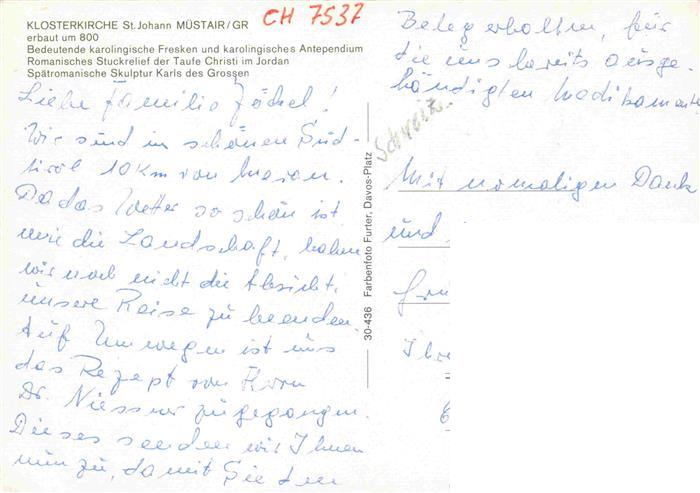 KLOSTERKIRCHE St. Johann MÜSTAIR/GR
erbaut um 800
Bedeutende karolingische Fresken und karolingisches Antependium
Romanisches Stuckrelief der Taufe Christi im Jordan
Spätromanische Skulptur Karls des Grossen
CH 7537
Liebe Familie Jäckel!
Wir sind im schönen Süd-
tirol 10 Km von Meran.
Da das Wetter so schön ist
wie die Landschaft, haben
wir noch nicht die Absicht,
unsere Reise zu beenden.
Auf Umwegen ist uns
das Rezept von Herrn
Dr. Niessner zugegangen.
Dieses senden wir Ihnen
nun zu, damit Sie den
30-436 Farbenfoto Furter, Davos-Platz
Schweiz
Beleg erhalten, für
die uns bereits ausge-
händigten Medikamente
Mit nomaligen Dank
und